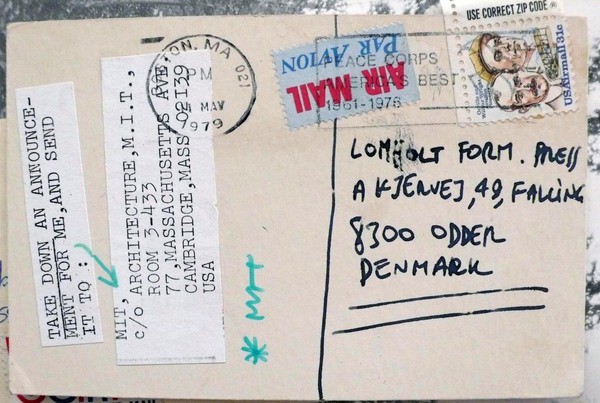 TAKE DOWN AN ANNOUNCE-
MENT FOR ME, AND SEND
IT TO :
MIT,
c/o ARCHITECTURE, M.I.T.,
ROOM 3-433
77, MASSACHUSETTS AVE
CAMBRIDGE, MASS 02139
USA
* MIT
TON, MA 021
PM
MAY
1979
PAR AVION
AIR MAIL
PEACE CORPS
AMERICA'S BEST
1961-1976
USE CORRECT ZIP CODE ®
USAirmail 31c
LOMHOLT FORM. PRESS
A KJERVEJ, 49, FALLING
8300 ODDER
DENMARK